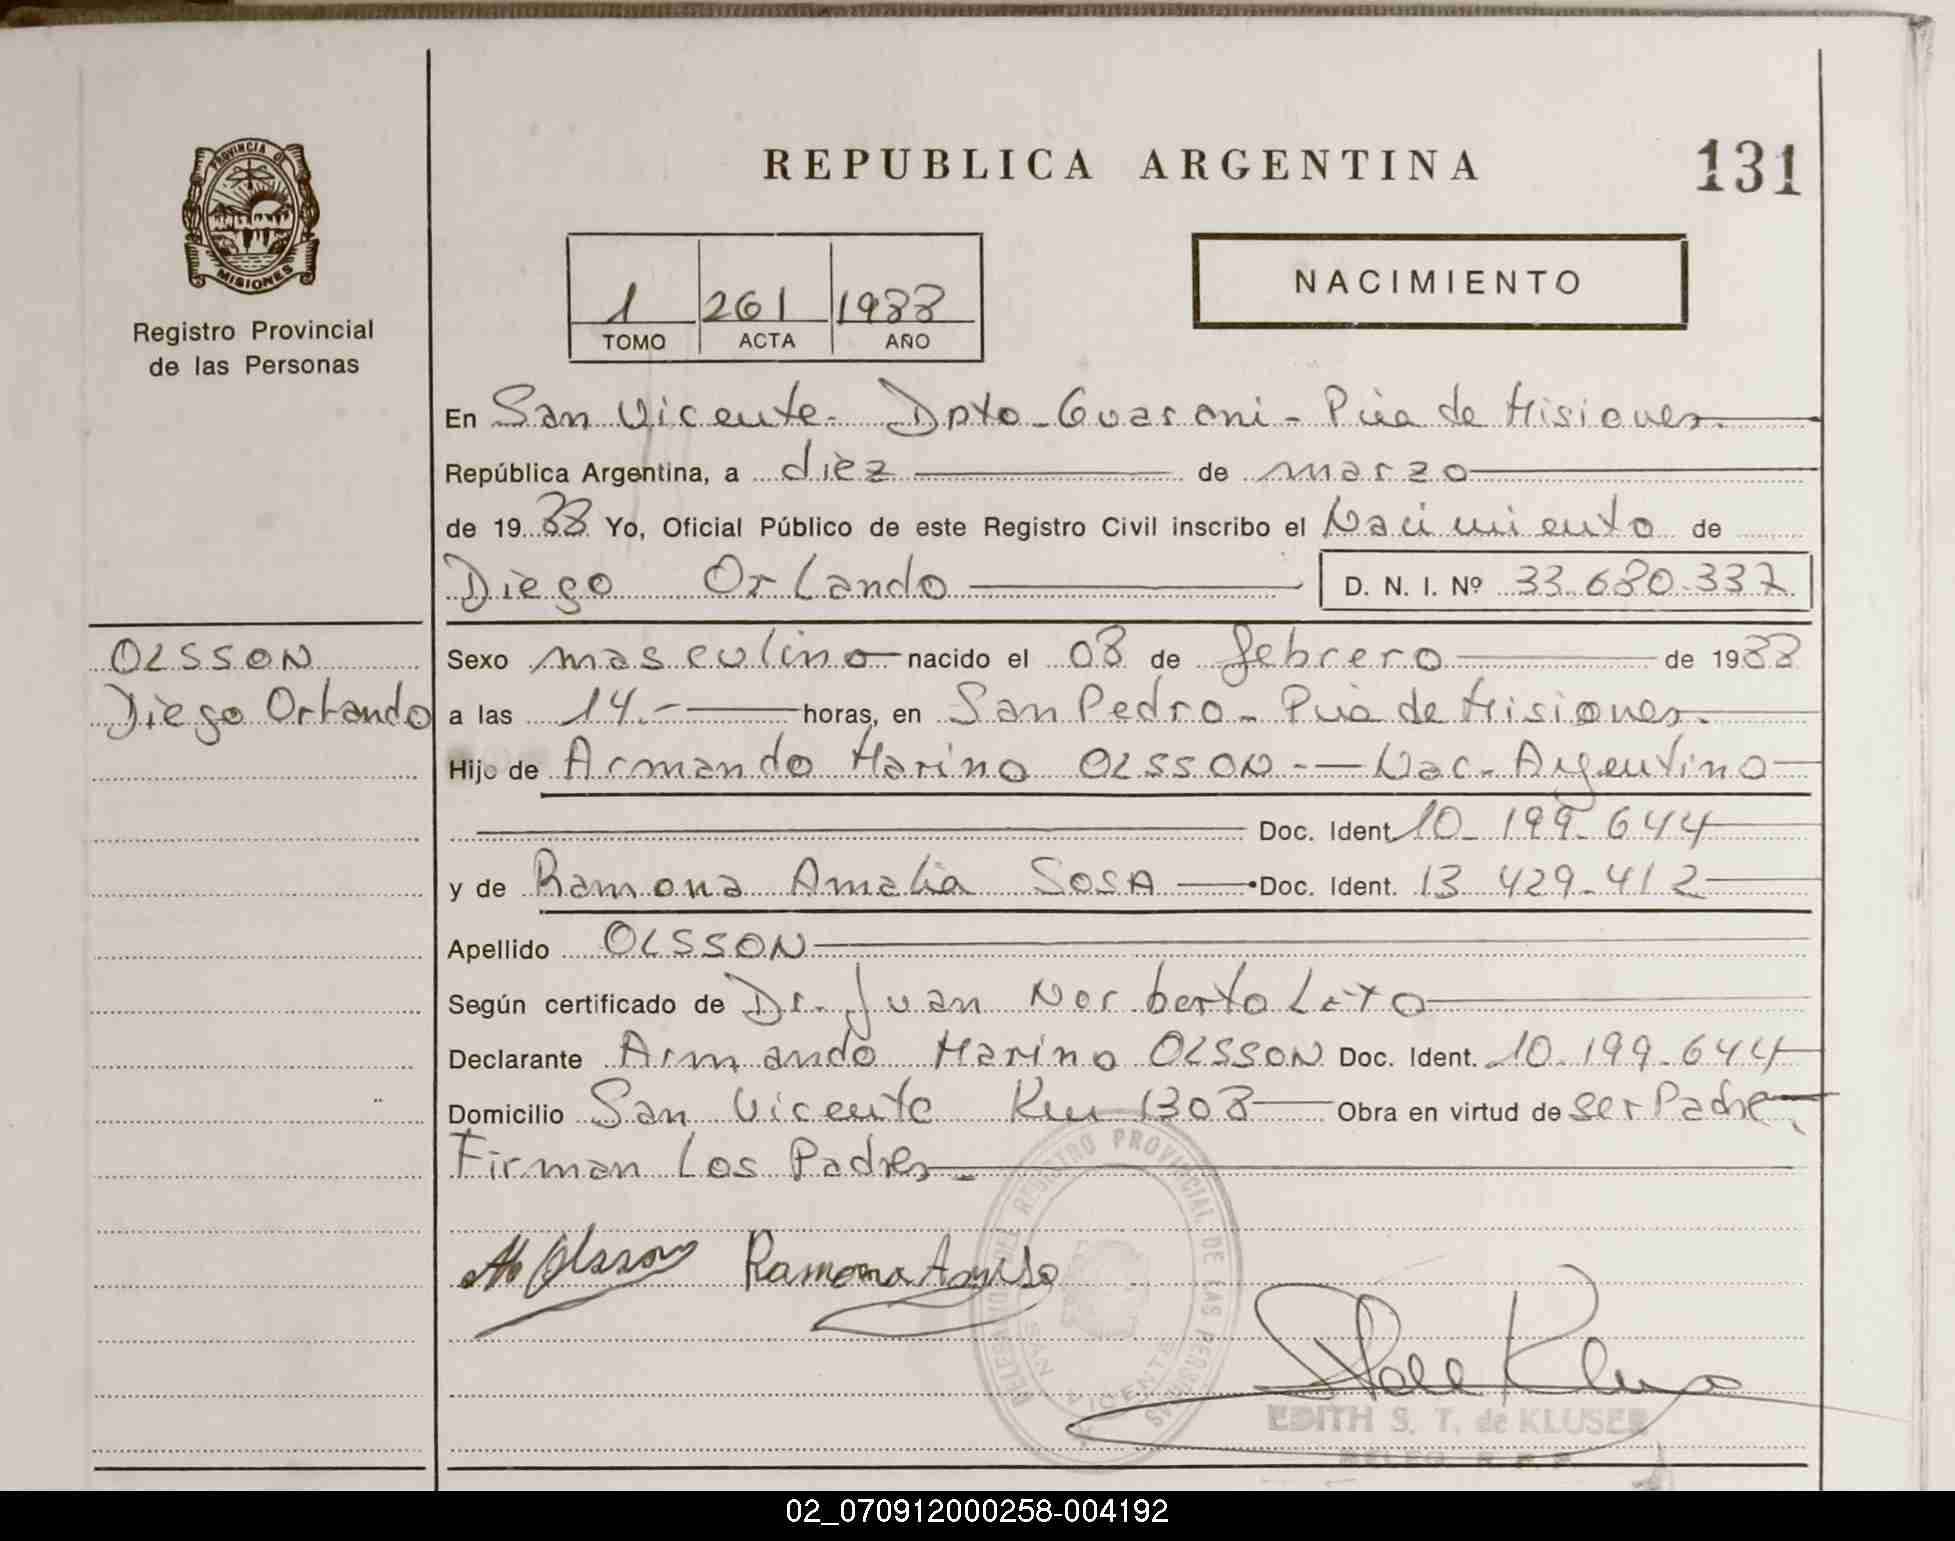 REPUBLICA ARGENTINA
131
PROVINCIA DE
MISIONES
Registro Provincial
de las Personas
1 261 1988
TOMO ACTA AÑO
NACIMIENTO
En San Vicente. Dpto. Guarani - Pcia de Misiones.
República Argentina, a diez de marzo
de 1988 Yo, Oficial Público de este Registro Civil inscribo el Nacimiento de
Diego Orlando D. N. I. Nº 33.680.337
OLSSON
Diego Orlando
Sexo masculino nacido el 08 de febrero de 1988
a las 14.- horas, en San Pedro - Pcia de Misiones.
Hijo de Armando Marino OLSSON - Nac. Argentino
Doc. Ident. 10.199.644
y de Ramona Amalia SOSA Doc. Ident. 13.429.412
Apellido OLSSON
Según certificado de Dr. Juan Norberto
Declarante Armando Marino OLSSON Doc. Ident. 10.199.644
Domicilio San Vicente Km 1308 Obra en virtud de ser Padre.
Firman Los Padres -
REGISTRO PROVINCIAL DE LAS PERSONAS
SAN VICENTE
Olsson Ramona
EDITH S. T. de KLUSER
02_070912000258-004192